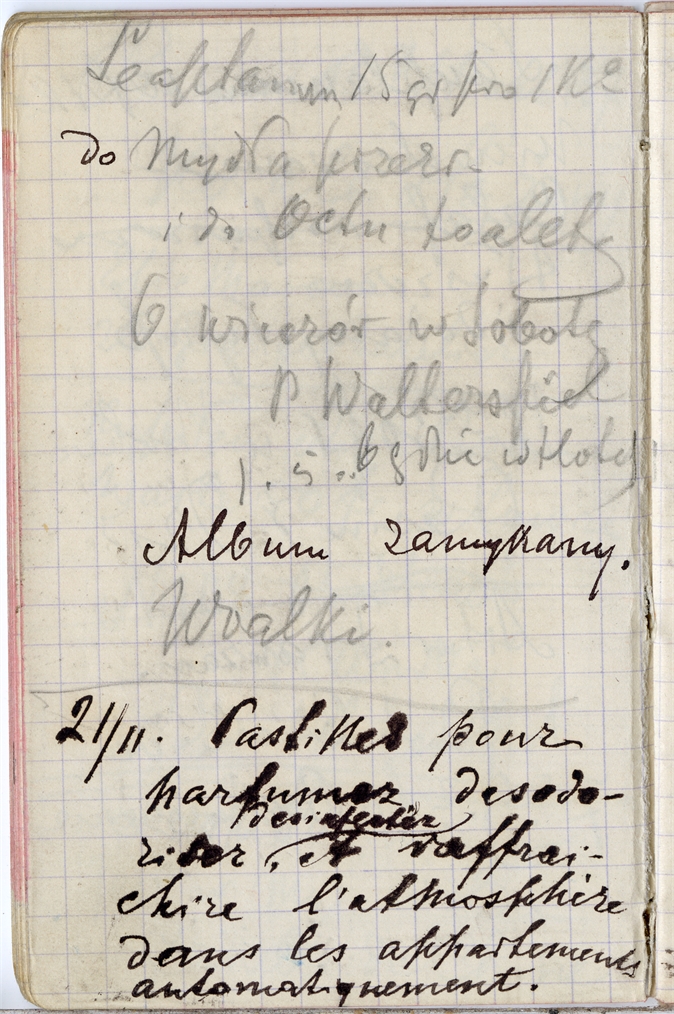 15 gr pro 1 Ko
do Mydła przezr-
i do Octu toalet
6 wieczór w Sobotę
P Walterspiel
będzie w Hotelu
Album zamykany.
Woalki.
21/11. Pastilles pour
parfumer desodo-
desinfecter
riser, et raffrai-
chire l'atmosphère
dans les appartements
automatiquement.